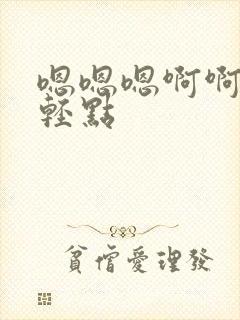 嗯嗯嗯啊啊
輕點
貧僧愛理發